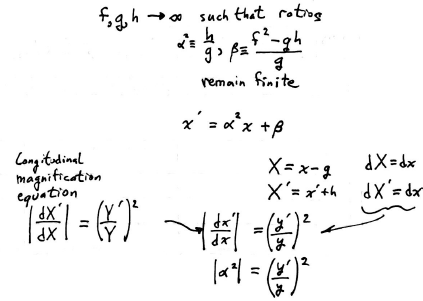 f, g, h → ∞ such that ratios
α² ≡ h/g, β ≡ (f² - gh)/g
remain finite
x' = α²x + β
Longitudinal
magnification
equation
|dX'/dX| = (Y'/Y)²
X = x - g
X' = x' + h
dX = dx
dX' = dx
|dx'/dx| = (y'/y)²
|α²| = (y'/y)²